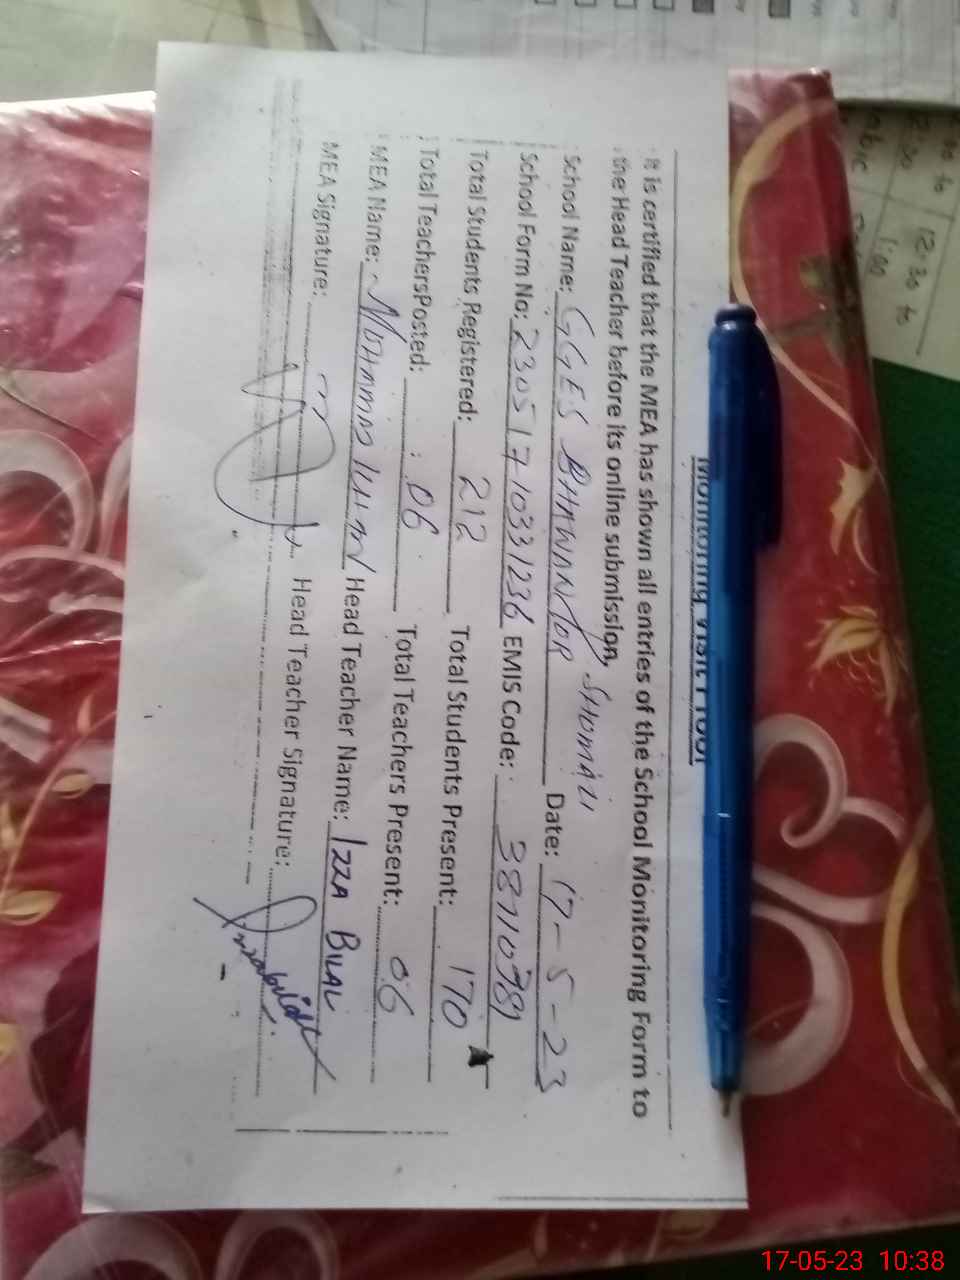 Monitoring Visit Proof
It is certified that the MEA has shown all entries of the School Monitoring Form to
the Head Teacher before its online submission.
School Name: GGES BHAWANPOR SHOMALI Date: 17-5-23
School Form No: 23051710331236 EMIS Code: 38110
Total Students Registered: 212 Total Students Present: 170
Total TeachersPosted: 06 Total Teachers Present: 06
MEA Name: Head Teacher Name: IZZA BILAL
MEA Signature: Head Teacher Signature: Izzabilal
12:30 to
1:00
17-05-23 10:38